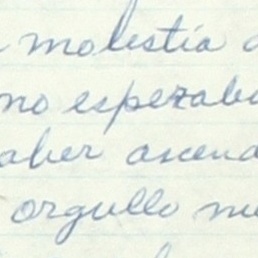 molestia
no esperaba
aber ascend
orgullo